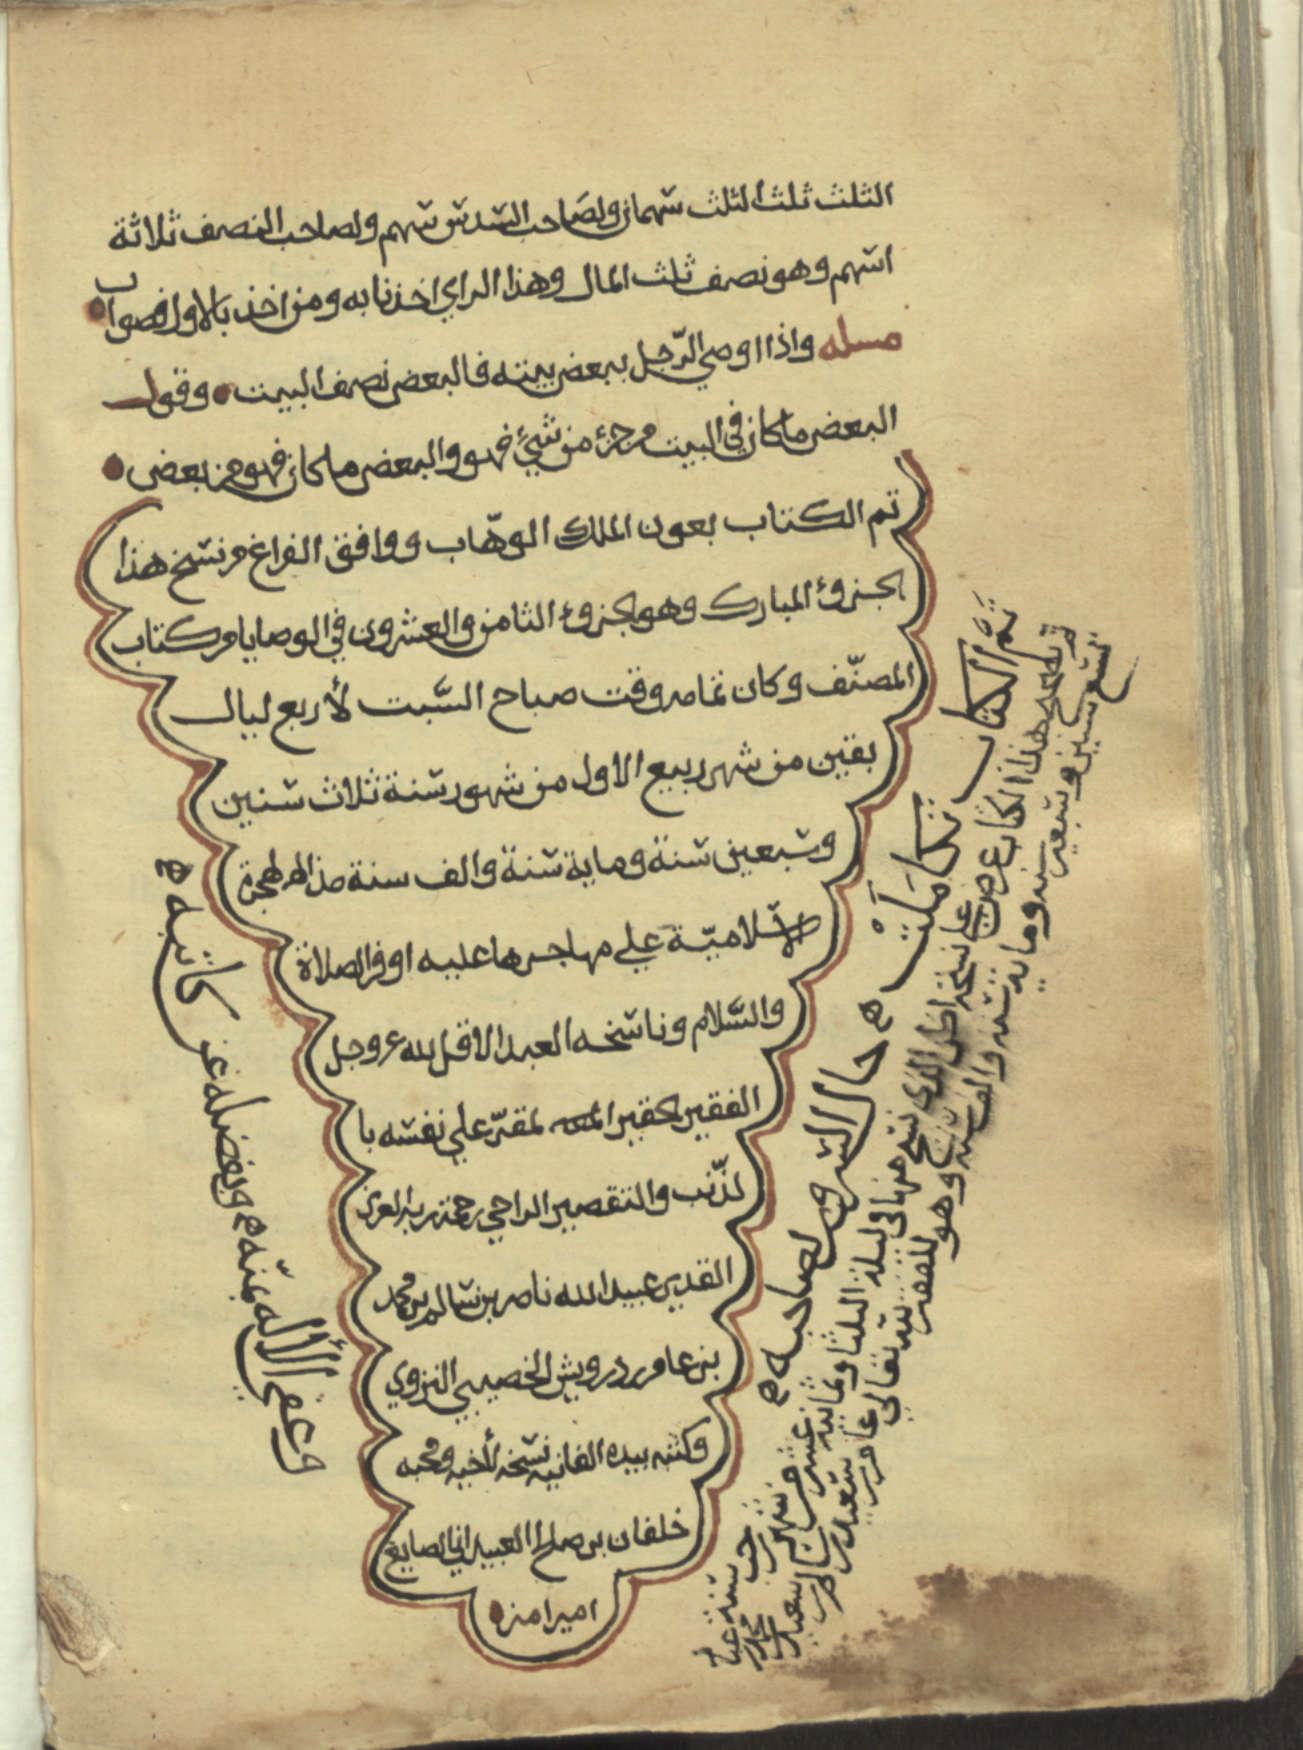 الثلث ثلثا لثلث سهمان ولصاحب السدس سهم ولصاحب النصف ثلاثة
اسهم وهو نصف ثلث المال وهذا الراي اخذنا به ومن اخذ بالاول فصواب
مسله واذا اوصي الرّجل ببعض بيته فالبعض نصف البيت وقول
البعض ما كان في البيت من جزء من شيئ فهو والبعض ما كان فهو من بعض
تم الكتاب بعون الملك الوهّاب ووافق الفراغ من نسخ هذا
الجزوء المبارك وهو الجزوء الثامن والعشرون في الوصايا من كتاب
المصنّف وكان تمامه وقت صباح السّبت لأربع ليال
بقين من شهر ربيع الاول من شهور سنة ثلاث سنين
وسبعين سنة وماية سنة والف سنة من الهجرة
الاسلاميّة علي مهاجرها عليه اوفر الصلاة
والسّلام وناسخه العبد الاقل لله عز وجل
الفقير الحقير المقرّ علي نفسه با
لذّنب والتقصير الراجي رحمة ربه العزيز
القدير عبيد الله ناصر بن سالم بن محمد
بن عامر درويش الخصيبي النزوي
وكتبه بيده الفانيه نسخه لأخيه ومحبه
خلفان بن صالح العبيداني الصايغ
امير امنه
تمّ الكتاب تكاملت
حال السرور لصاحبه
وعفي الأله بمنّه وبفضله عن كاتبه
تم لي هذا الكتاب عرض علي نسخه
نسخ منها في ليلة الثلثا وثمانية عشر من شهر رجب سنة
تسع سنين وسبعين سنه وماية سنه والف سنه وهو للفقير لله تعالي عامر